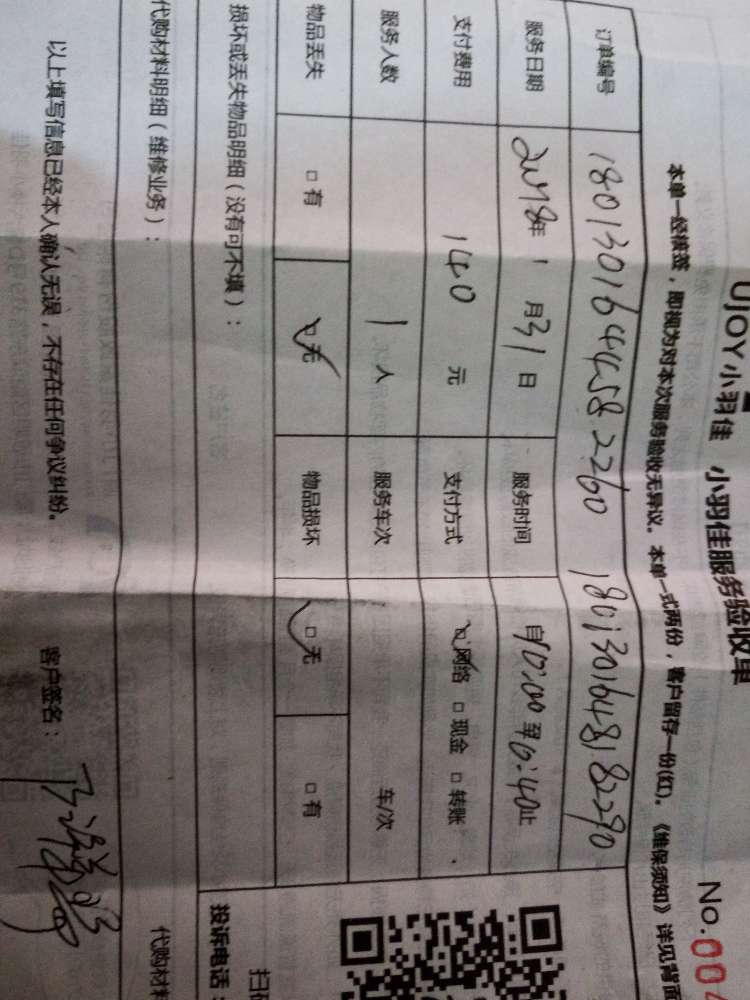 UJOY小羽佳 小羽佳服务验收单 No.004
本单一经核签，即视为对本次服务验收无异议。本单一式两份，客户留存一份(红)。《维保须知》详见背面
订单编号 1801301644582260 1801301648182290
服务日期 2018年1月31日 服务时间 自10:00至 :40止
支付费用 140元 支付方式 □网络 □现金 □转账
服务人数 1人 服务车次 车/次
物品丢失 □有 □无 物品损坏 □无 □有
损坏或丢失物品明细（没有可不填）：
代购材料明细（维修业务）： 代购材料
以上填写信息已经本人确认无误，不存在任何争议纠纷。 客户签名：
扫
投诉电话：